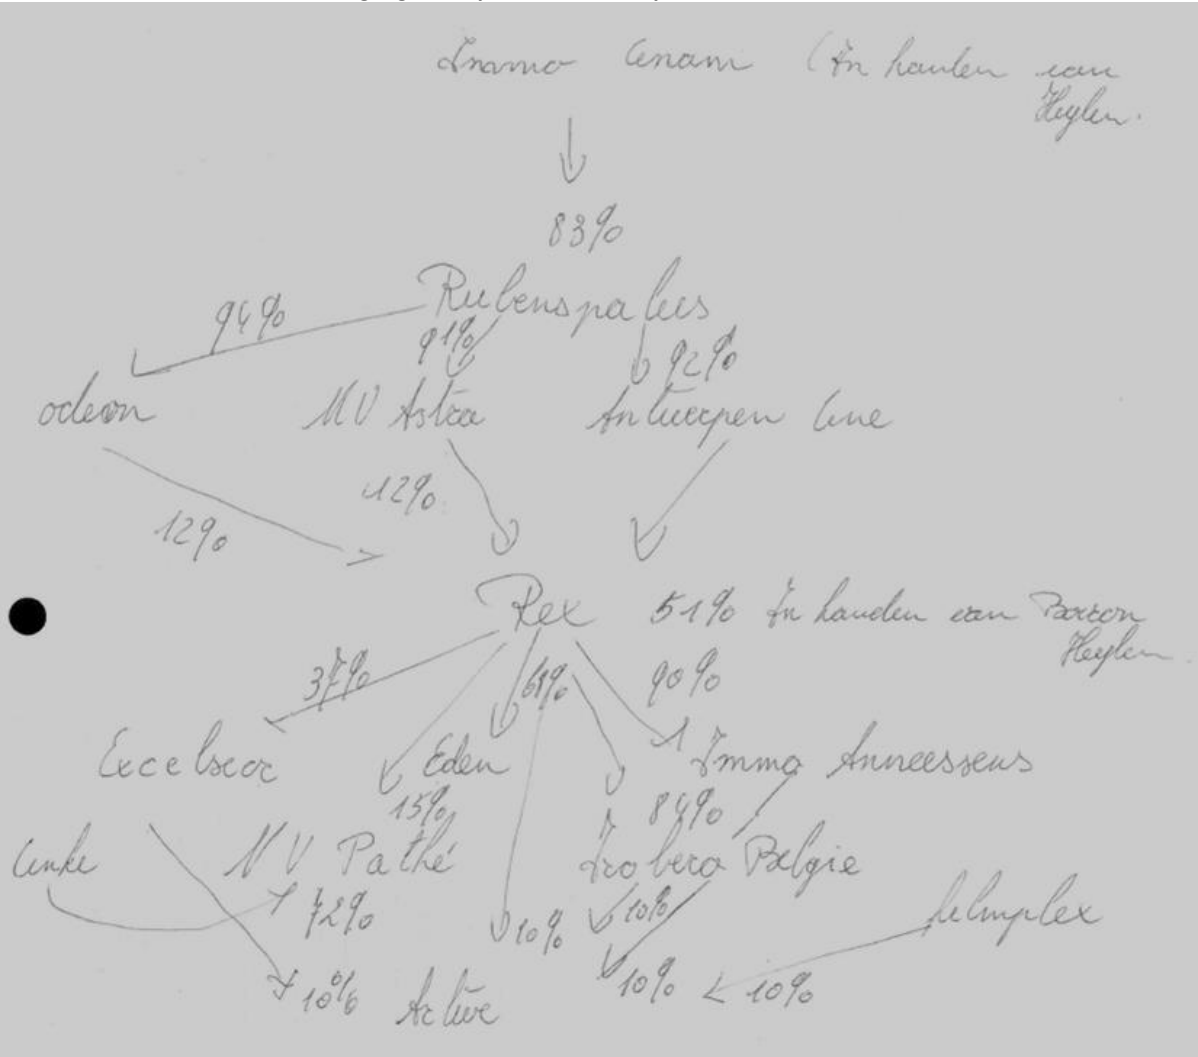 Immo Cinam (In handen van
Heylen.
83%
Rubenspaleis
94%
91%
92%
odeon
NV Astra
Antwerpen Cine
12%
12%
Rex 51% In handen van
Heylen
37%
68%
90%
Excelsior
Eden
Immo Anneessens
15%
84%
NV Pathé
Belgie
72%
10%
10%
10%
10%
10%
Active